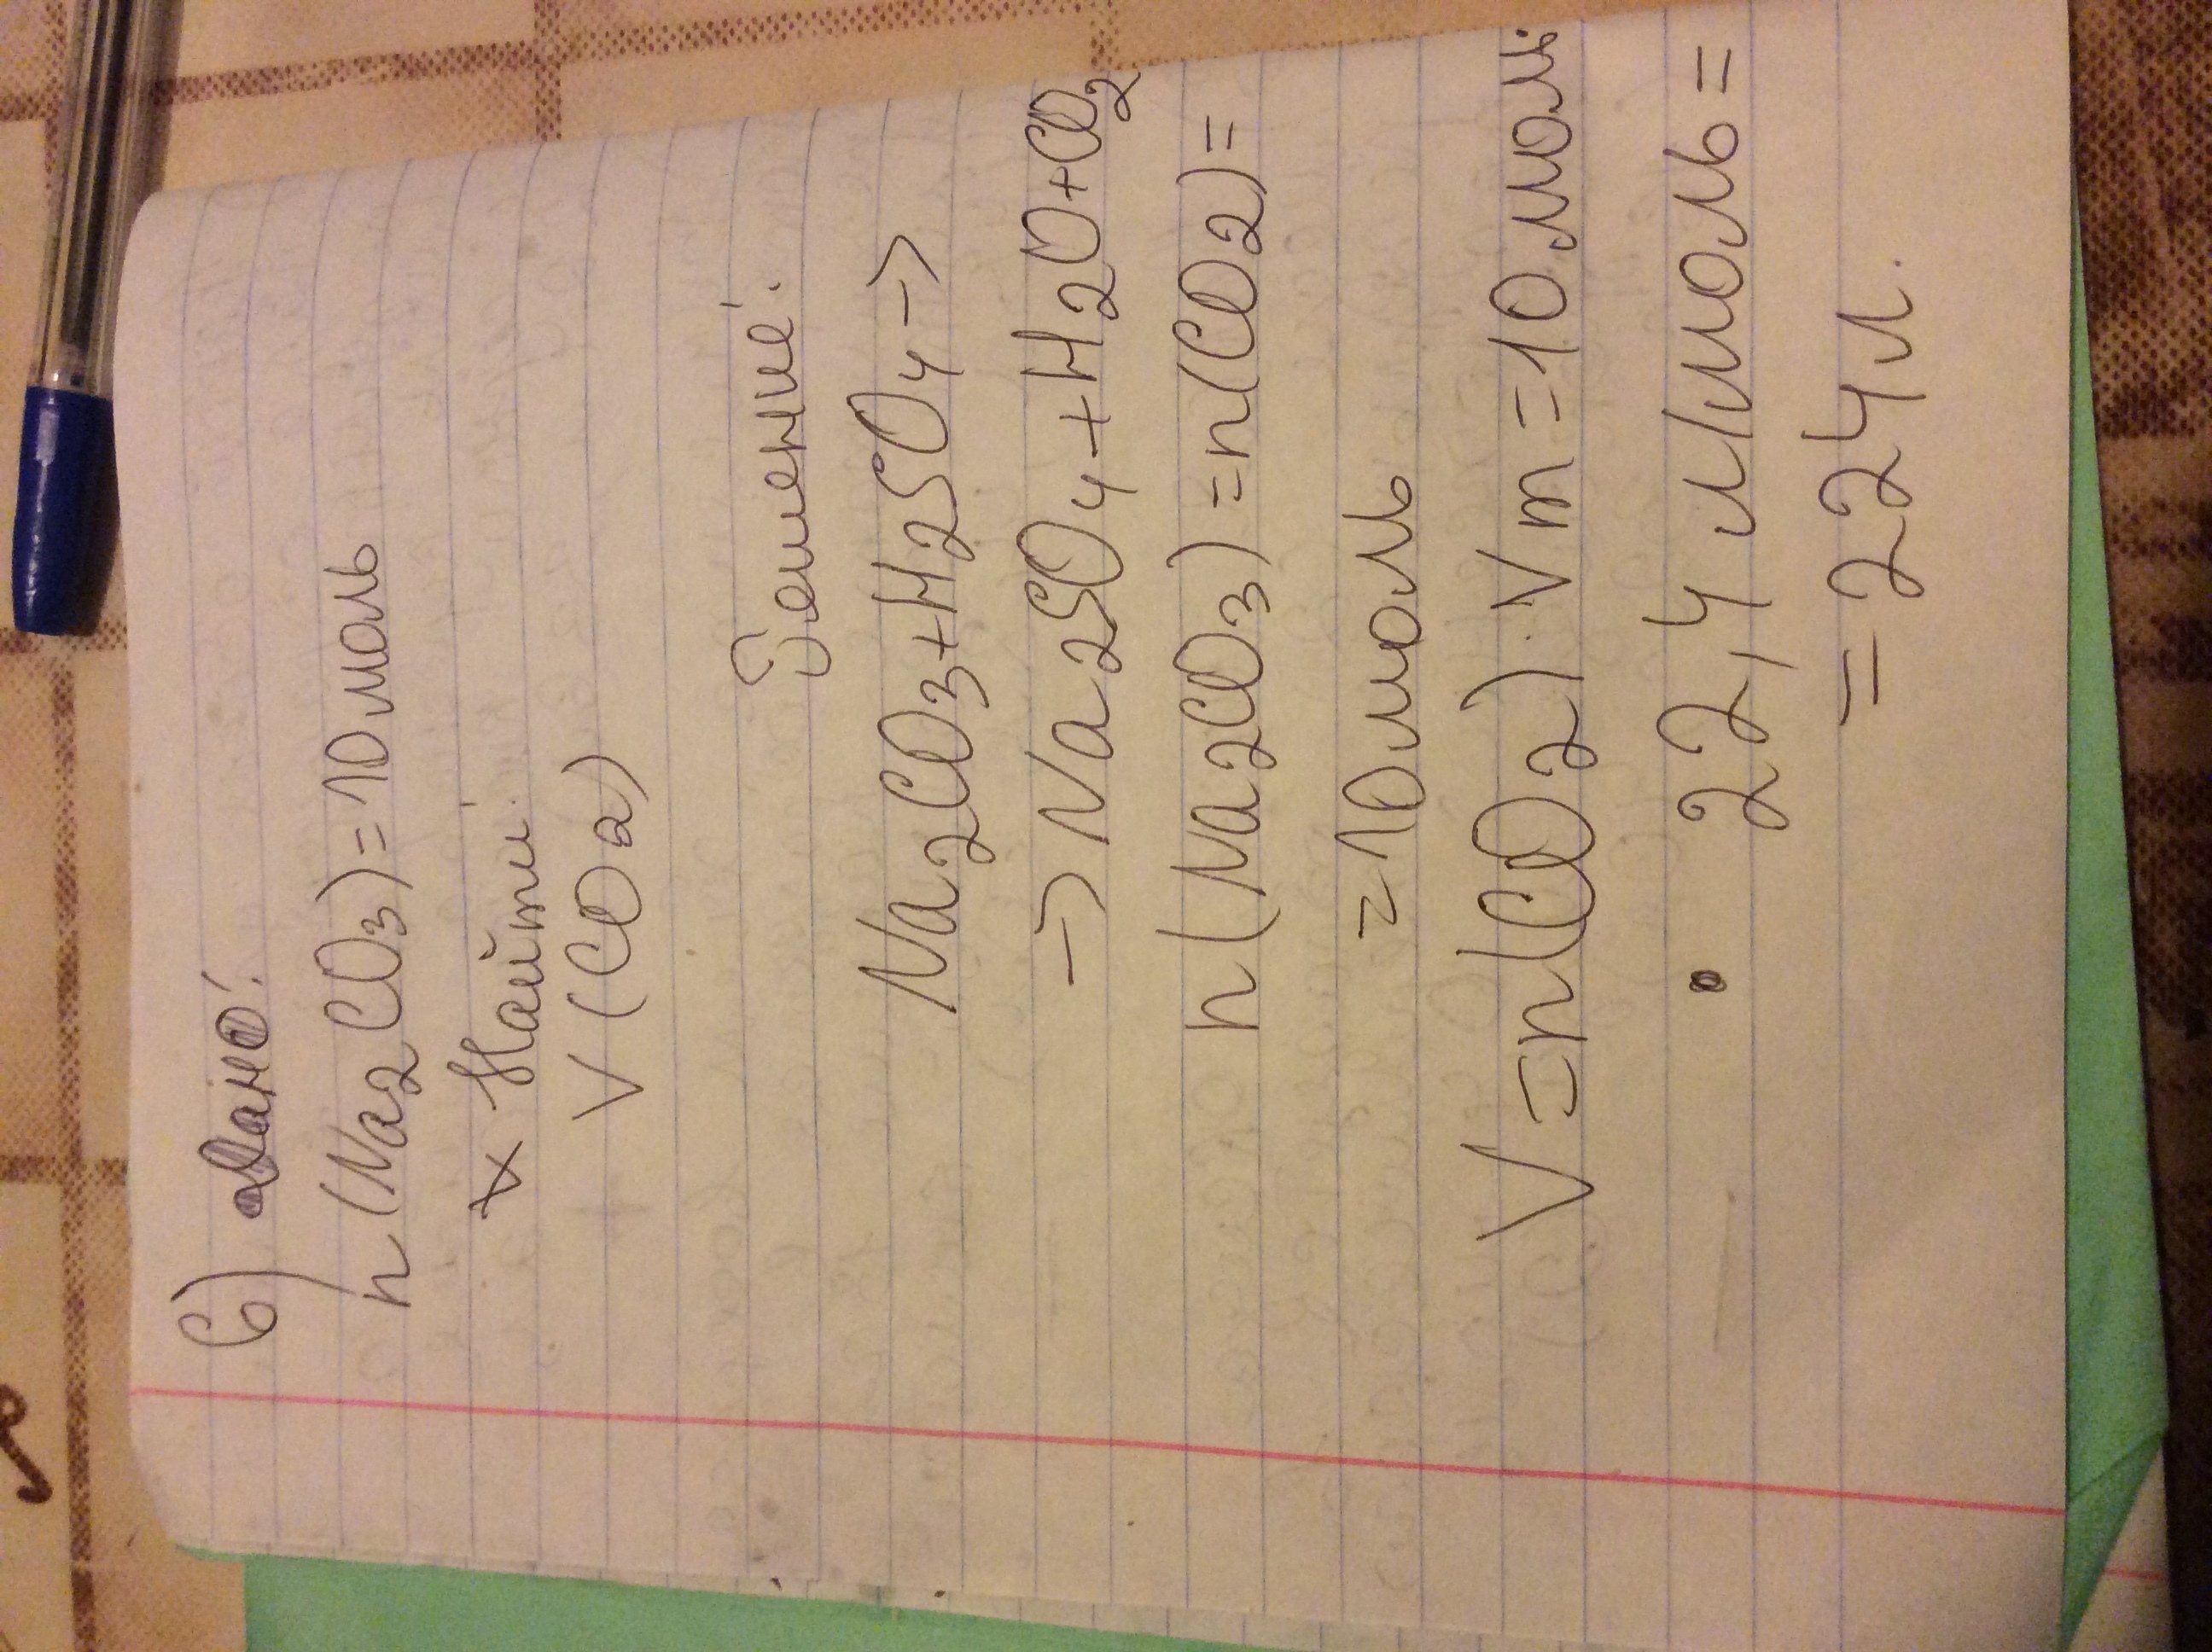 6) Дано:
n(Na2CO3)=10 моль
Найти:
V(CO2)
Решение:
Na2CO3+H2SO4→
→Na2SO4+H2O+CO2
n(Na2CO3)=n(CO2)=
=10 моль
V=n(CO2)·Vm=10 моль·
· 22,4 л/моль=
=224л.